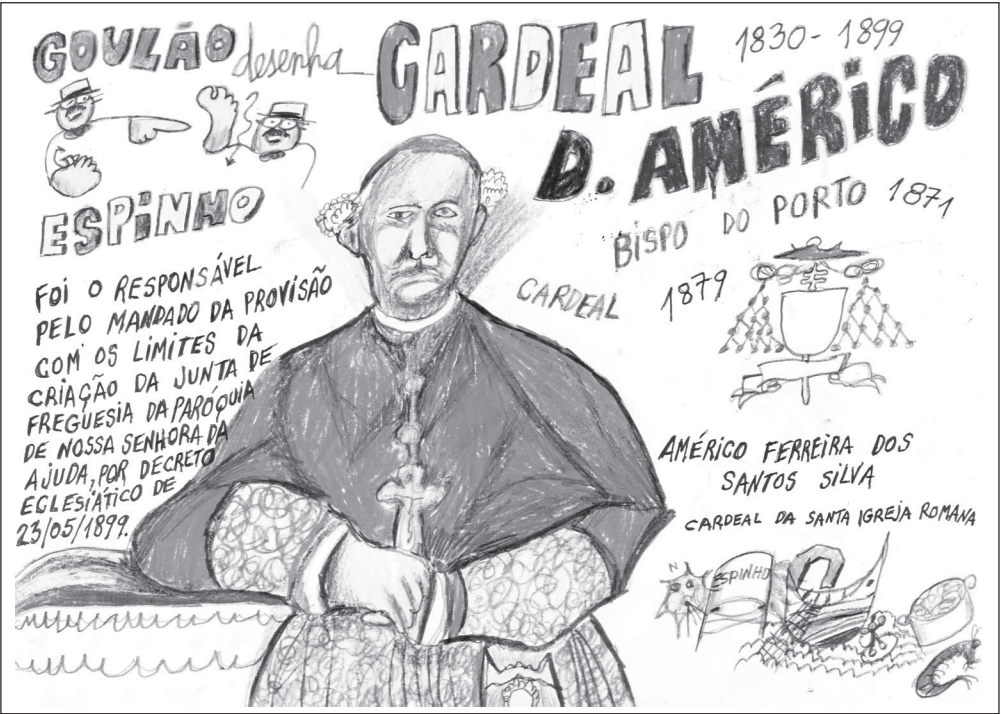 GOULÃO desenha
ESPINHO
CARDEAL
1830 - 1899
D. AMÉRICO
BISPO DO PORTO 1871
CARDEAL 1879
FOI O RESPONSÁVEL
PELO MANDADO DA PROVISÃO
COM OS LIMITES DA
CRIAÇÃO DA JUNTA DE
FREGUESIA DA PARÓQUIA
DE NOSSA SENHORA DA
AJUDA, POR DECRETO
ECLESIÁTICO DE
23/05/1899.
AMÉRICO FERREIRA DOS
SANTOS SILVA
CARDEAL DA SANTA IGREJA ROMANA
N
ESPINHO